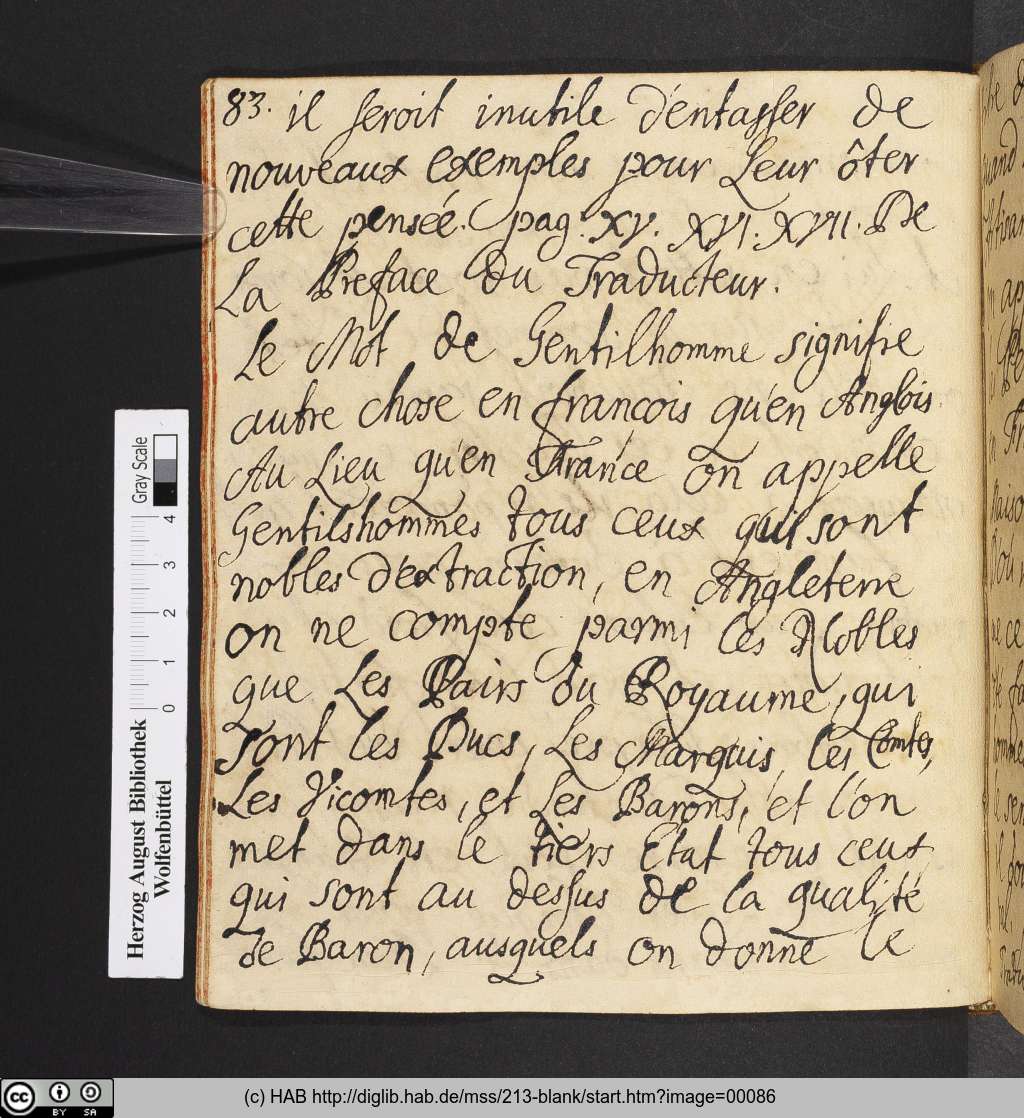 83. il seroit inutile d'entasser de
nouveaux exemples pour Leur ôter
cette pensée. (pag. XV. XVI. XVII. De
La Preface du Traducteur.
Le Mot de Gentilhomme signifie
autre chose en françois qu'en Anglois.
Au Lieu qu'en France on appelle
Gentilshommes tous ceux qui sont
nobles d'extraction, en Angleterre
on ne compte parmi les Nobles
que Les Pairs du Royaume, qui
sont les Ducs, Les Marquis, les Comtes,
Les Vicomtes, et Les Barons, et l'on
met dans le tiers Etat tous ceux
qui sont au dessus de la qualité
de Baron, ausquels on donne le
Herzog August Bibliothek
Wolfenbüttel
0 1 2 3 4
Gray Scale
BY SA
(c) HAB http://diglib.hab.de/mss/213-blank/start.htm?image=00086